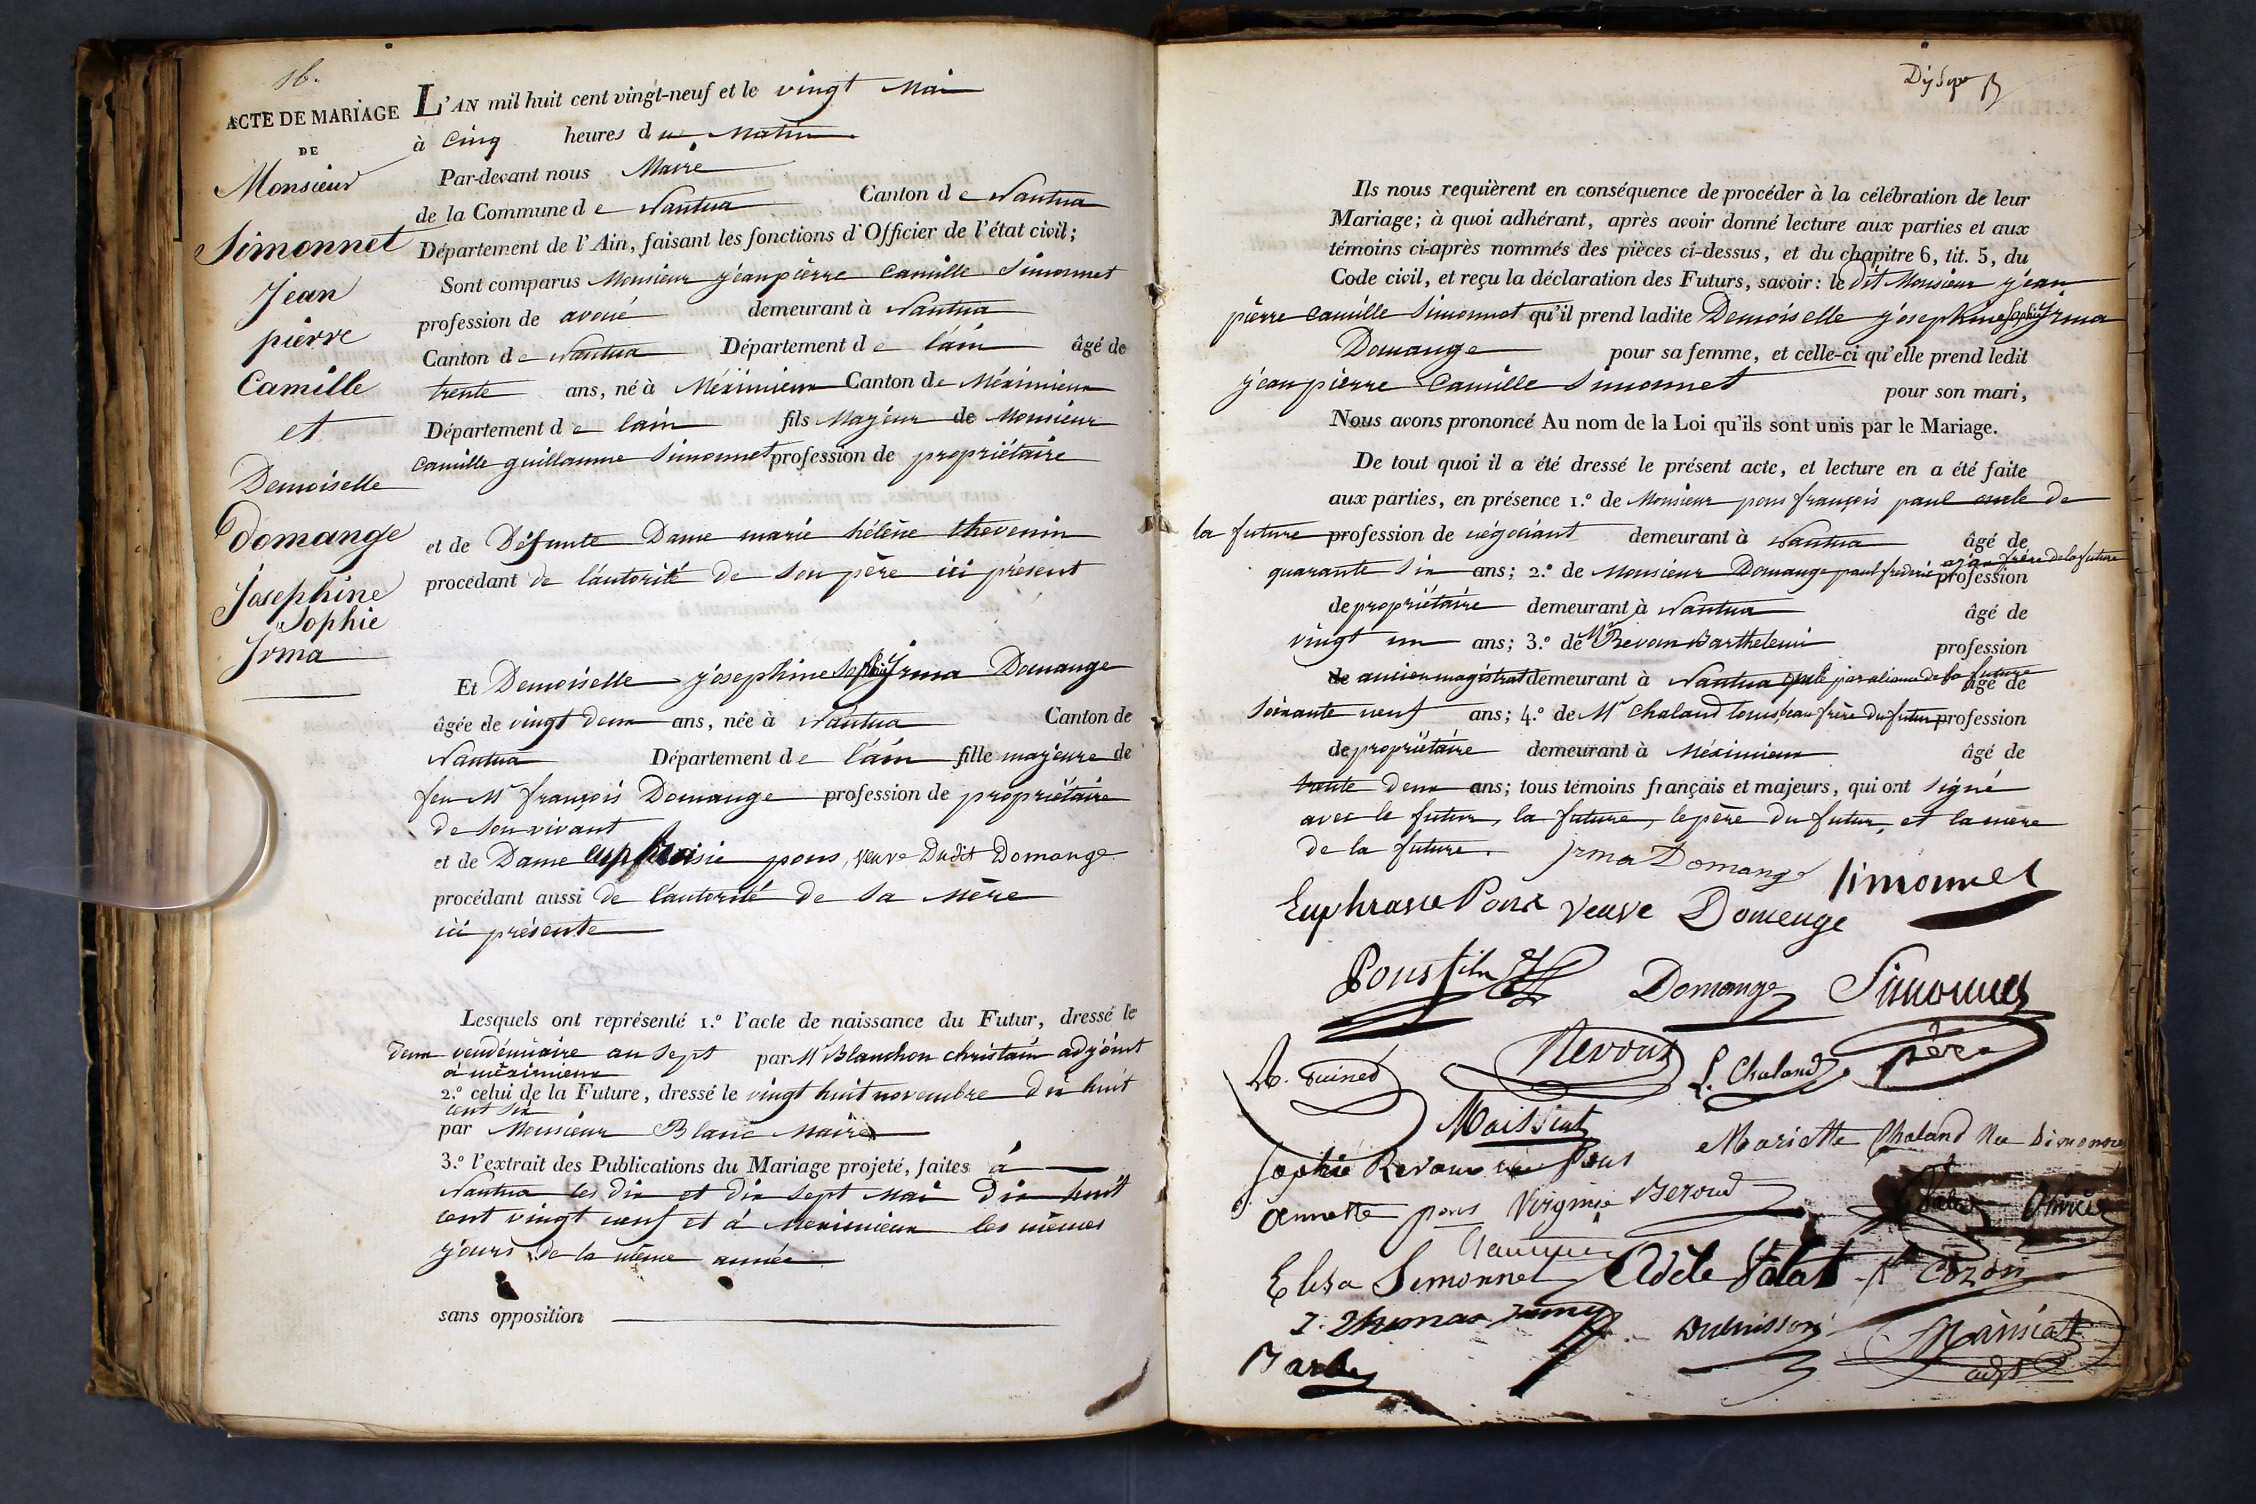 16.
ACTE DE MARIAGE
DE
Monsieur
Simonnet
Jean
pierre
Camille
et
Demoiselle
Domange
Josephine
Sophie
Irma
L'AN mil huit cent vingt-neuf et le vingt Mai
à Cinq heures du Matin
Par-devant nous Maire
de la Commune de Nantua Canton de Nantua
Département de l'Ain, faisant les fonctions d'Officier de l'état civil;
Sont comparus Monsieur jean pierre Camille Simonnet
profession de avoué demeurant à Nantua
Canton de Nantua Département de lain âgé de
trente ans, né à Méximieux Canton de Méximieux
Département de lain fils Majeur de Monsieur
Camille guillaume Simonnet profession de propriétaire
et de Défunte Dame marie hélène thevenin
procédant de l'autorité de Son père ici présent
Et Demoiselle josephine Sophie Irma Domange
âgée de vingt deux ans, née à Nantua Canton de
Nantua Département de l'ain fille majeure de
feu Mr françois Domange profession de propriétaire
de Son vivant
et de Dame pons, veuve Dudit Domange
procédant aussi de l'autorité de Sa Mère
ici présente
Lesquels ont représenté 1.º l'acte de naissance du Futur, dressé le
deux vendémiaire an Sept par Mr Blanchon christain adjoint
à méximieux
2.º celui de la Future, dressé le vingt huit novembre dix huit
cent Six
par Monsieur Blanc Maire
3.º l'extrait des Publications du Mariage projeté, faites à
Nantua les dix et dix Sept Mai Dix huit
cent vingt neuf et à Meximieux les mêmes
jours de la même année
sans opposition
Ils nous requièrent en conséquence de procéder à la célébration de leur
Mariage; à quoi adhérant, après avoir donné lecture aux parties et aux
témoins ci-après nommés des pièces ci-dessus, et du chapitre 6, tit. 5, du
Code civil, et reçu la déclaration des Futurs, savoir: le dit Monsieur jean
pierre Camille Simonnet qu'il prend ladite Demoiselle josephine Sophie Irma
Domange pour sa femme, et celle-ci qu'elle prend ledit
jean pierre Camille Simonnet pour son mari,
Nous avons prononcé Au nom de la Loi qu'ils sont unis par le Mariage.
De tout quoi il a été dressé le présent acte, et lecture en a été faite
aux parties, en présence 1.º de Monsieur pons françois paul oncle de
la future profession de négociant demeurant à Nantua âgé de
quarante Six ans; 2.º de Monsieur Domange paul frederic frère de la future profession
de propriétaire demeurant à Nantua âgé de
vingt un ans; 3.º de Mr Revoux Barthelemi profession
de ancien magistrat demeurant à Nantua oncle par aliance de la future âgé de
Soixante neuf ans; 4.º de Mr Chaland Louis, beau frère du futur profession
de propriétaire demeurant à Méximieux âgé de
trente deux ans; tous témoins français et majeurs, qui ont signé
avec le futur, la future, le père du futur, et la mère
de la future. Irma Domange Simonnet
Euphrasie Pons veuve Domenge
Pons fils Domange Simonnet
Revoux L. Chaland père
Maissiat
Sophie Revoux née Pons Mariette Chaland née Simonnet
Annette pons Virginie Beroud
Elisa Simonnet Adèle Cozon
J. Thomas
Dubuisson Mainiat
adjt